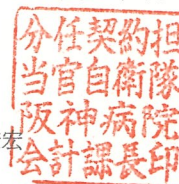 分任契約担
当官自衛隊
阪神病院
会計課長印
宏